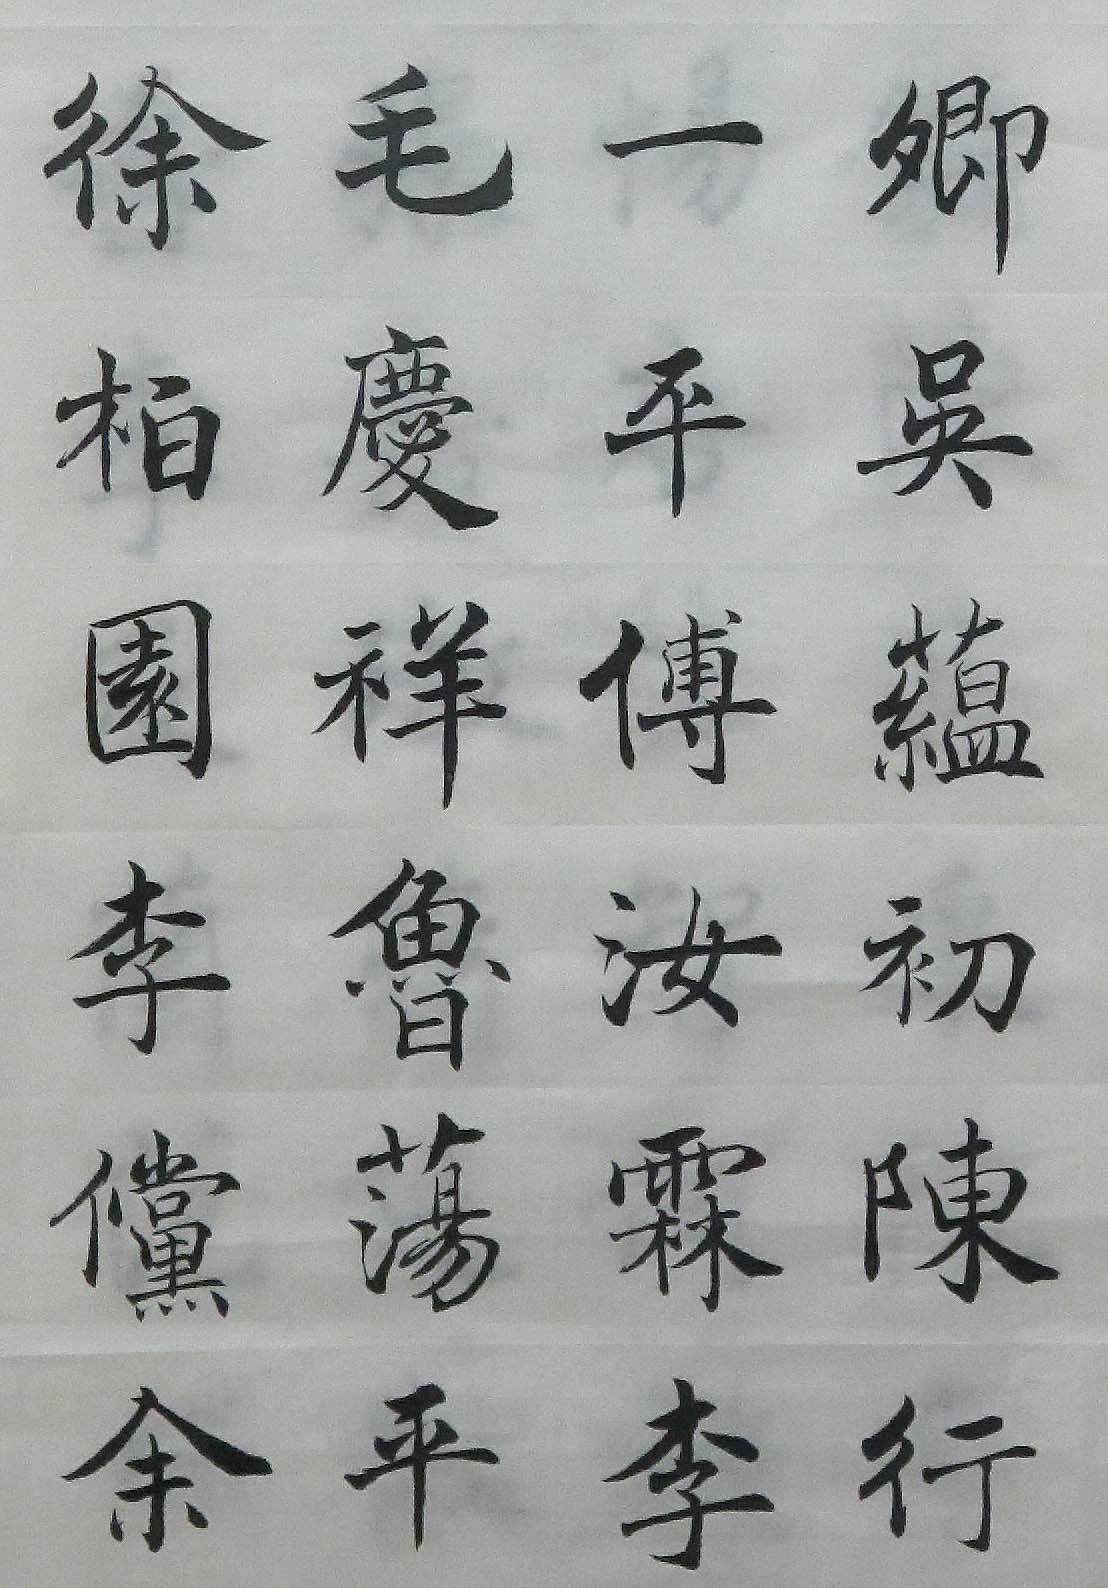 卿吳蘊初陳行
一平傅汝霖李
毛慶祥魯蕩平
徐柏園李儻余